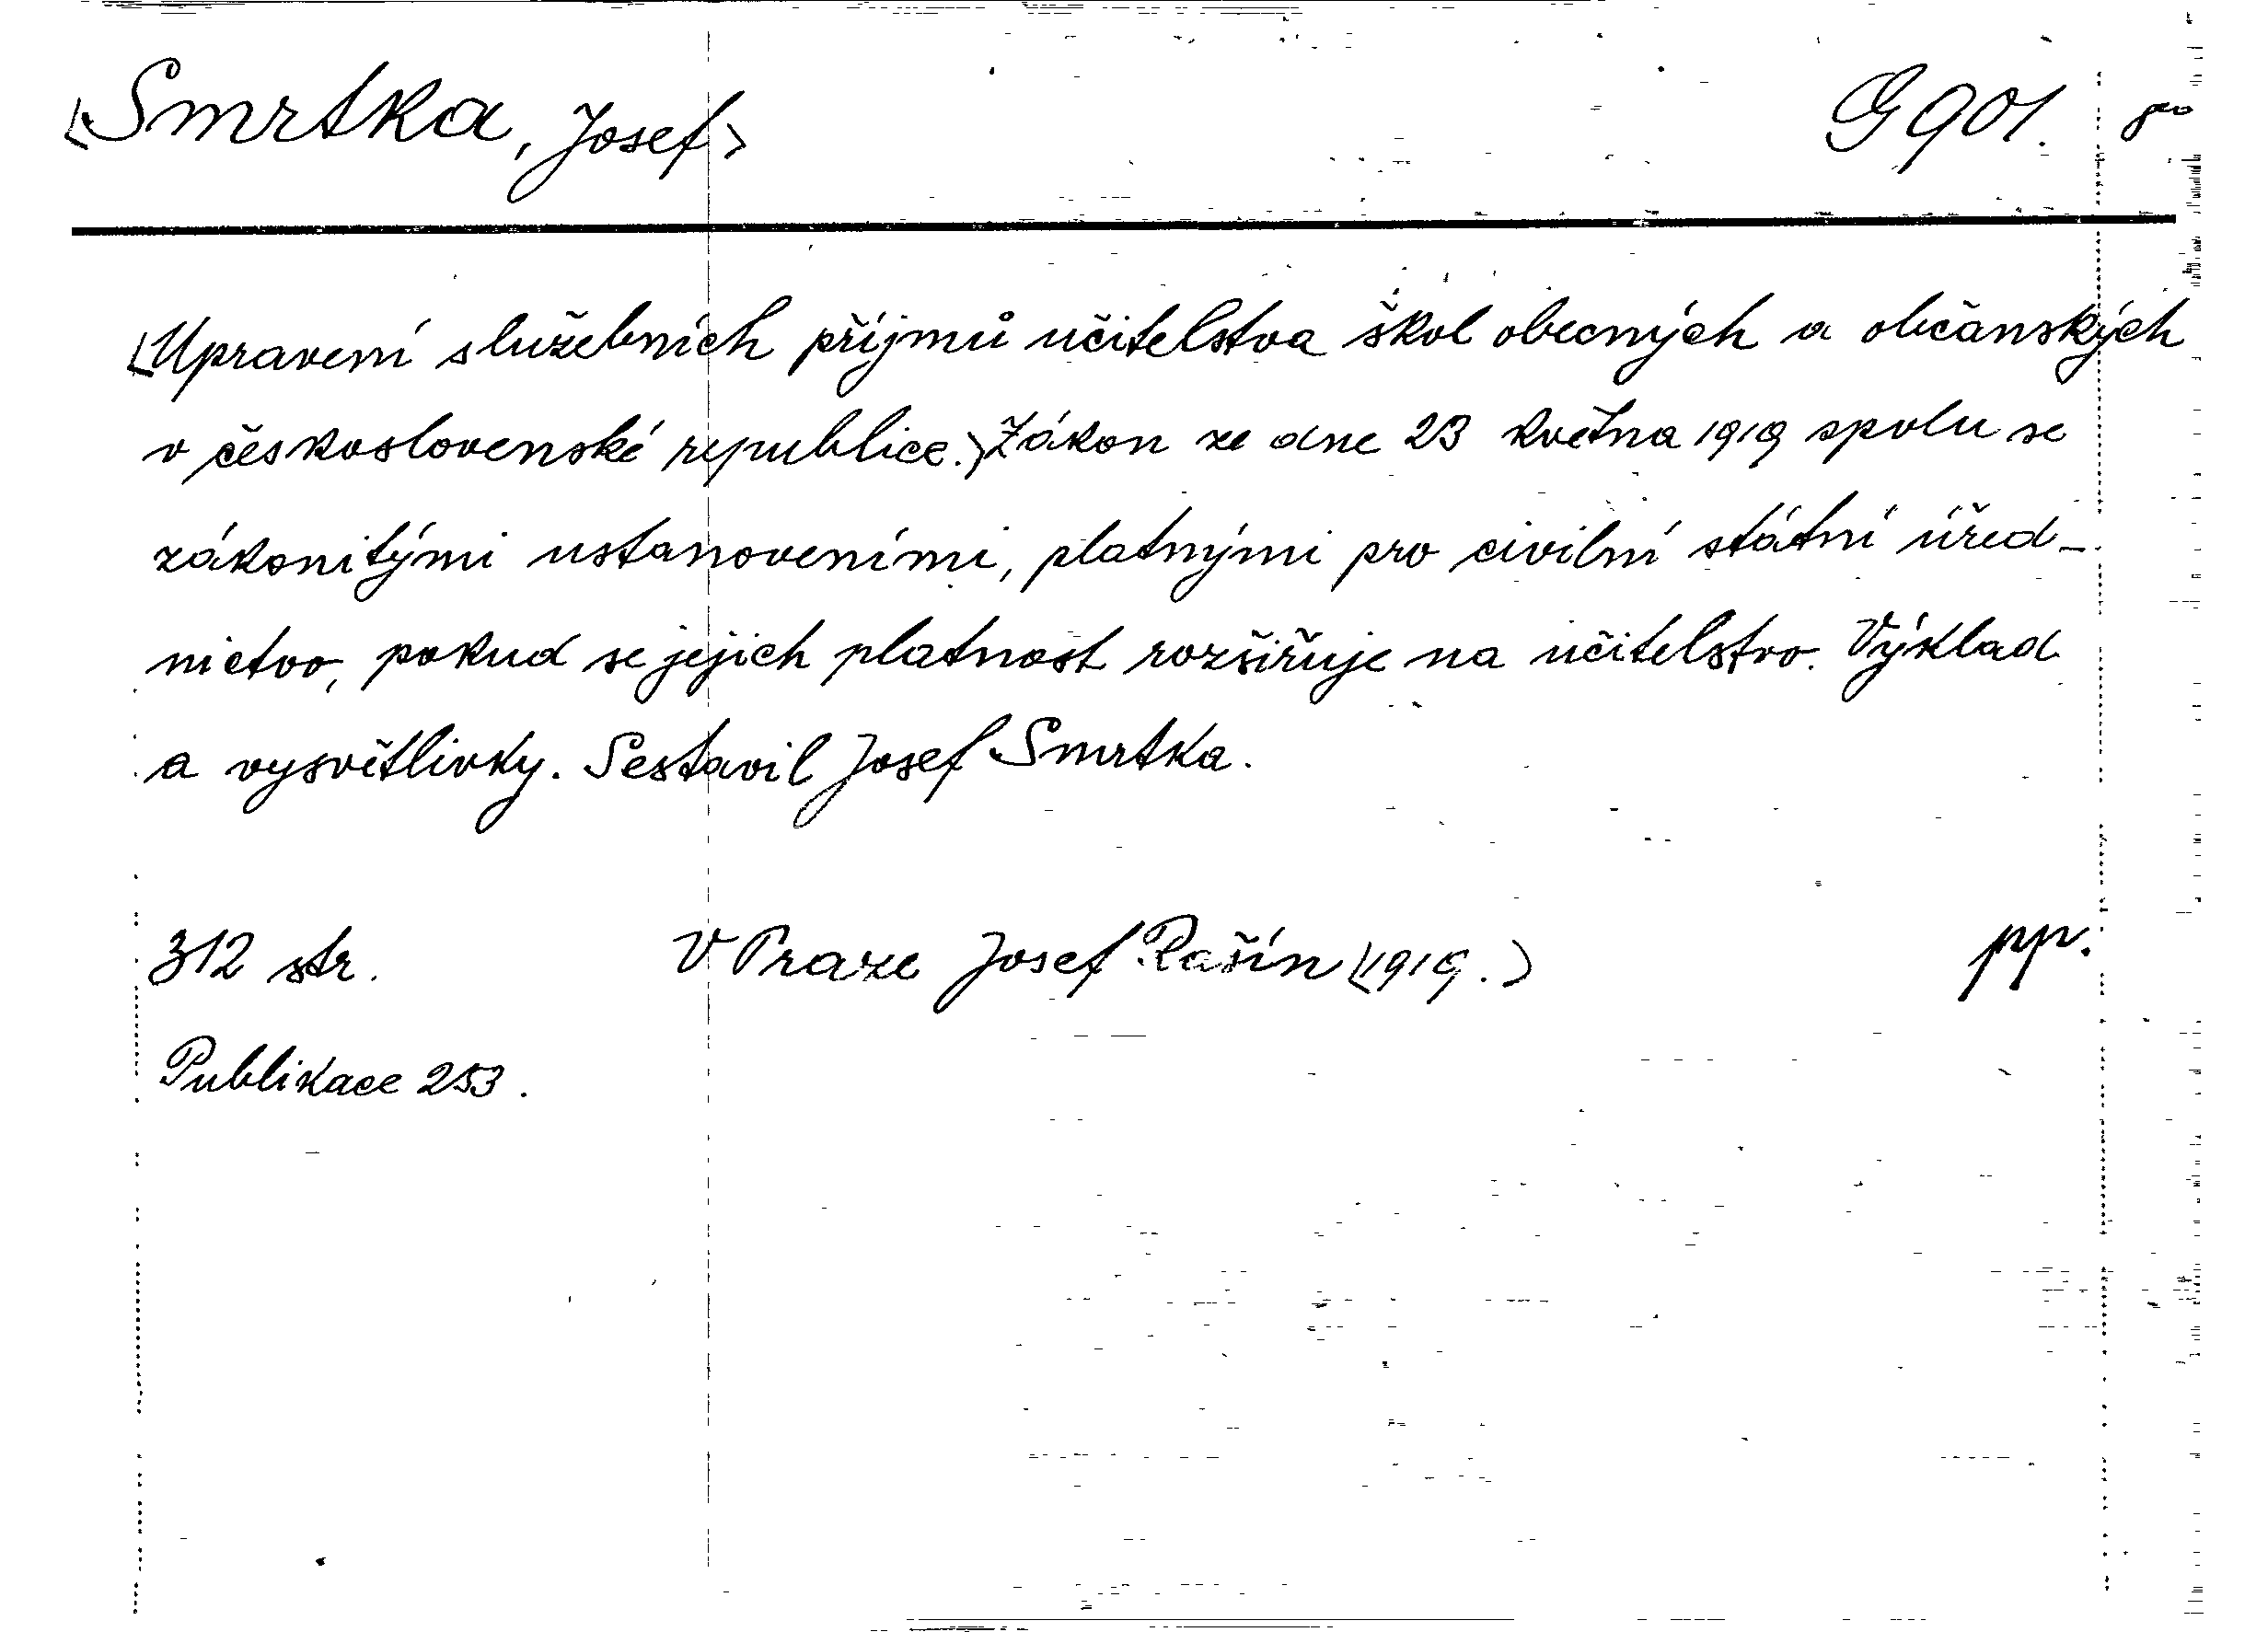 <Smrtka, Josef> G 901. 8°
<Upravení služebních příjmů učitelstva škol obecných a občanských
v československé republice.> Zákon ze dne 23 května 1919 spolu se
zákonitými ustanoveními, platnými pro civilní státní úřed-
nictvo, pokud se jejich platnost rozšiřuje na učitelstvo. Výklad
a vysvětlivky. Sestavil Josef Smrtka.
312 str. V Praze Josef Rašín (1919.) pp.
Publikace 253.